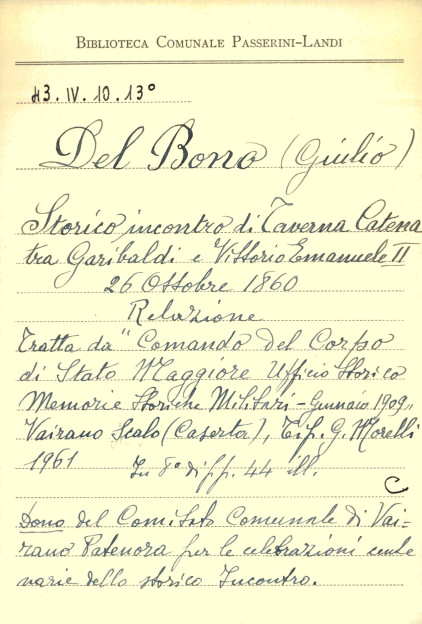 BIBLIOTECA COMUNALE PASSERINI-LANDI
43.IV.10.13°
Del Bono (Giulio)
Storico incontro di Taverna Catena
tra Garibaldi e Vittorio Emanuele II
26 Ottobre 1860
Relazione
Tratta da "Comando del Corpo
di Stato Maggiore Ufficio Storico
Memorie Storiche Militari - Gennaio 1909"
Vairano Scalo (Caserta), Tip. G. Morelli
1961 In 8° di pp. 44 ill.
C
Dono del Comitato Comunale di Vai=
rano Patenora per le celebrazioni cente
narie dello storico Incontro.